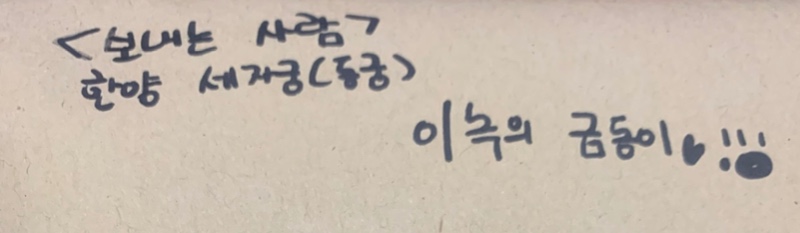 <보내는 사람>
한양 세자궁(동궁)
이녹의 금동이♥!!!